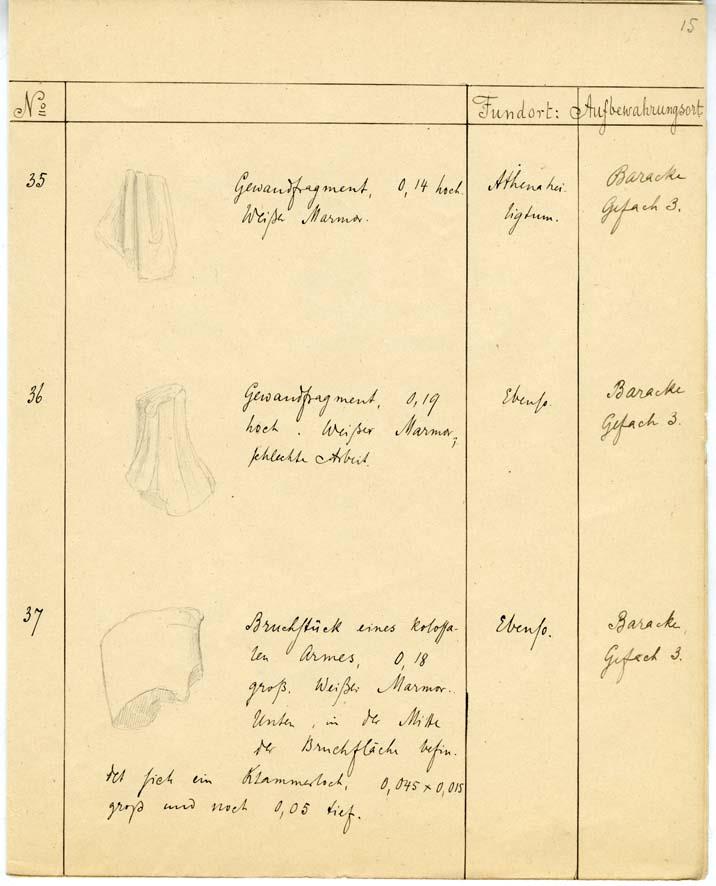 15
No Fundort: Aufbewahrungsort
35 Gewandfragment, 0,14 hoch. Athenahei- Baracke
Weißer Marmor. ligtum. Gefach 3.
36 Gewandfragment, 0,19 Ebenso. Baracke
hoch. Weißer Marmor, Gefach 3.
schlechte Arbeit.
37 Bruchstück eines kolossa- Ebenso. Baracke,
len Armes, 0,18 Gefach 3.
groß. Weißer Marmor.
Unten, in der Mitte
der Bruchfläche befin-
det sich ein Klammerloch, 0,045 x 0,015
groß und noch 0,05 tief.